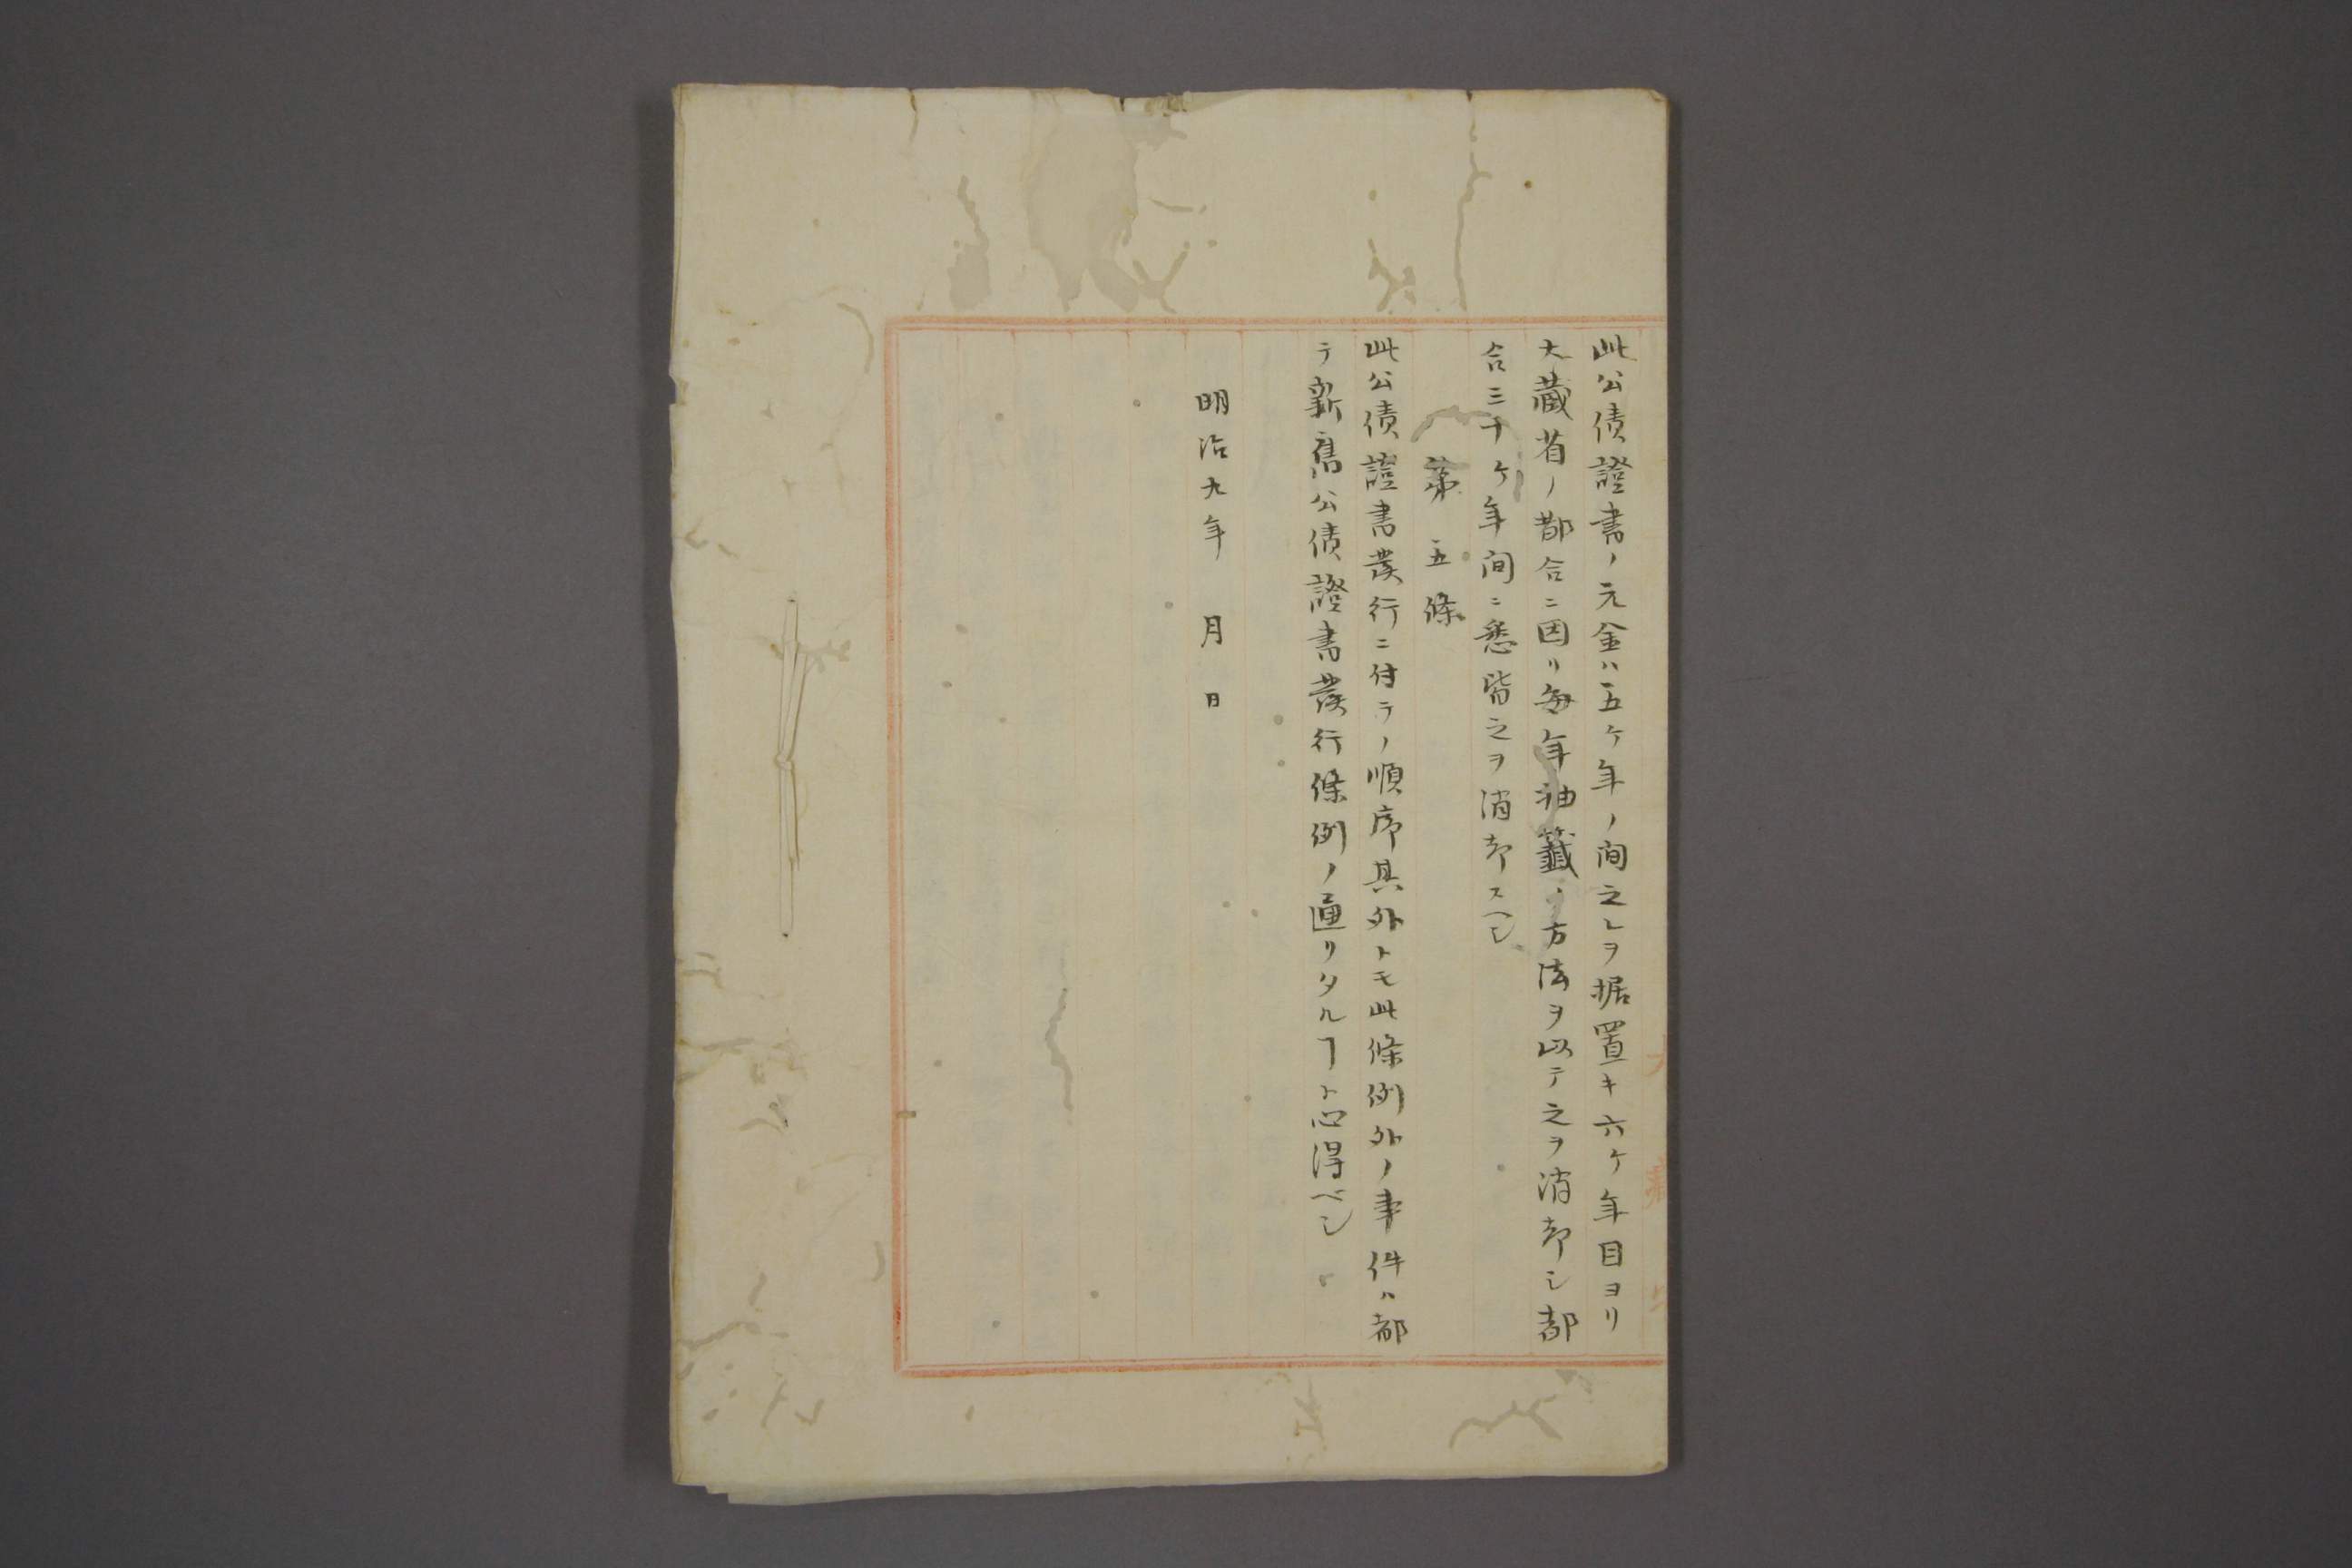 此公債證書ノ元金ハ五ケ年ノ間之レヲ据置キ六ケ年目ヨリ
大藏省ノ都合ニ因リ毎年抽籤ノ方法ヲ以テ之ヲ消却シ都
合三十ケ年間ニ悉皆之ヲ消却スヘシ
第五條
此公債證書發行ニ付テノ順序其外トモ此條例外ノ事件ハ都
テ新舊公債證書發行條例ノ通リタルヿト心得ベシ
明治九年 月 日